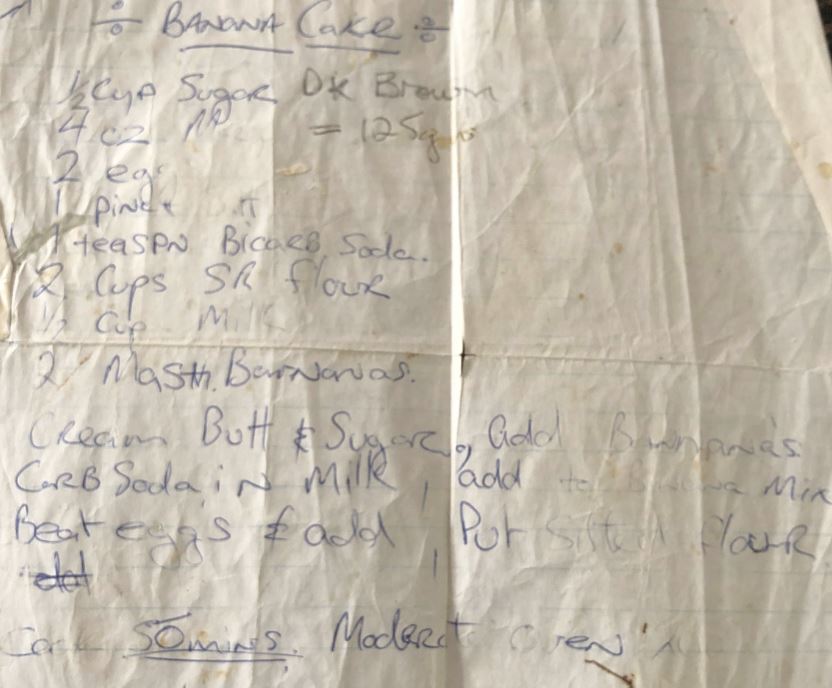 ÷ BANANA CAKE ÷
½ Cup Sugar DK Brown
4 oz = 125g
2
1
1 teaspn Bicarb Soda.
2 Cups SR flour
½ Cup Milk
2 Masth. Barnanas.
Cream Butt & Sugar, add Bannanas
Carb Soda in Milk, add to Banana Mix
Beat eggs & add, Put Sifted flour
50 mins. Moderat Oven